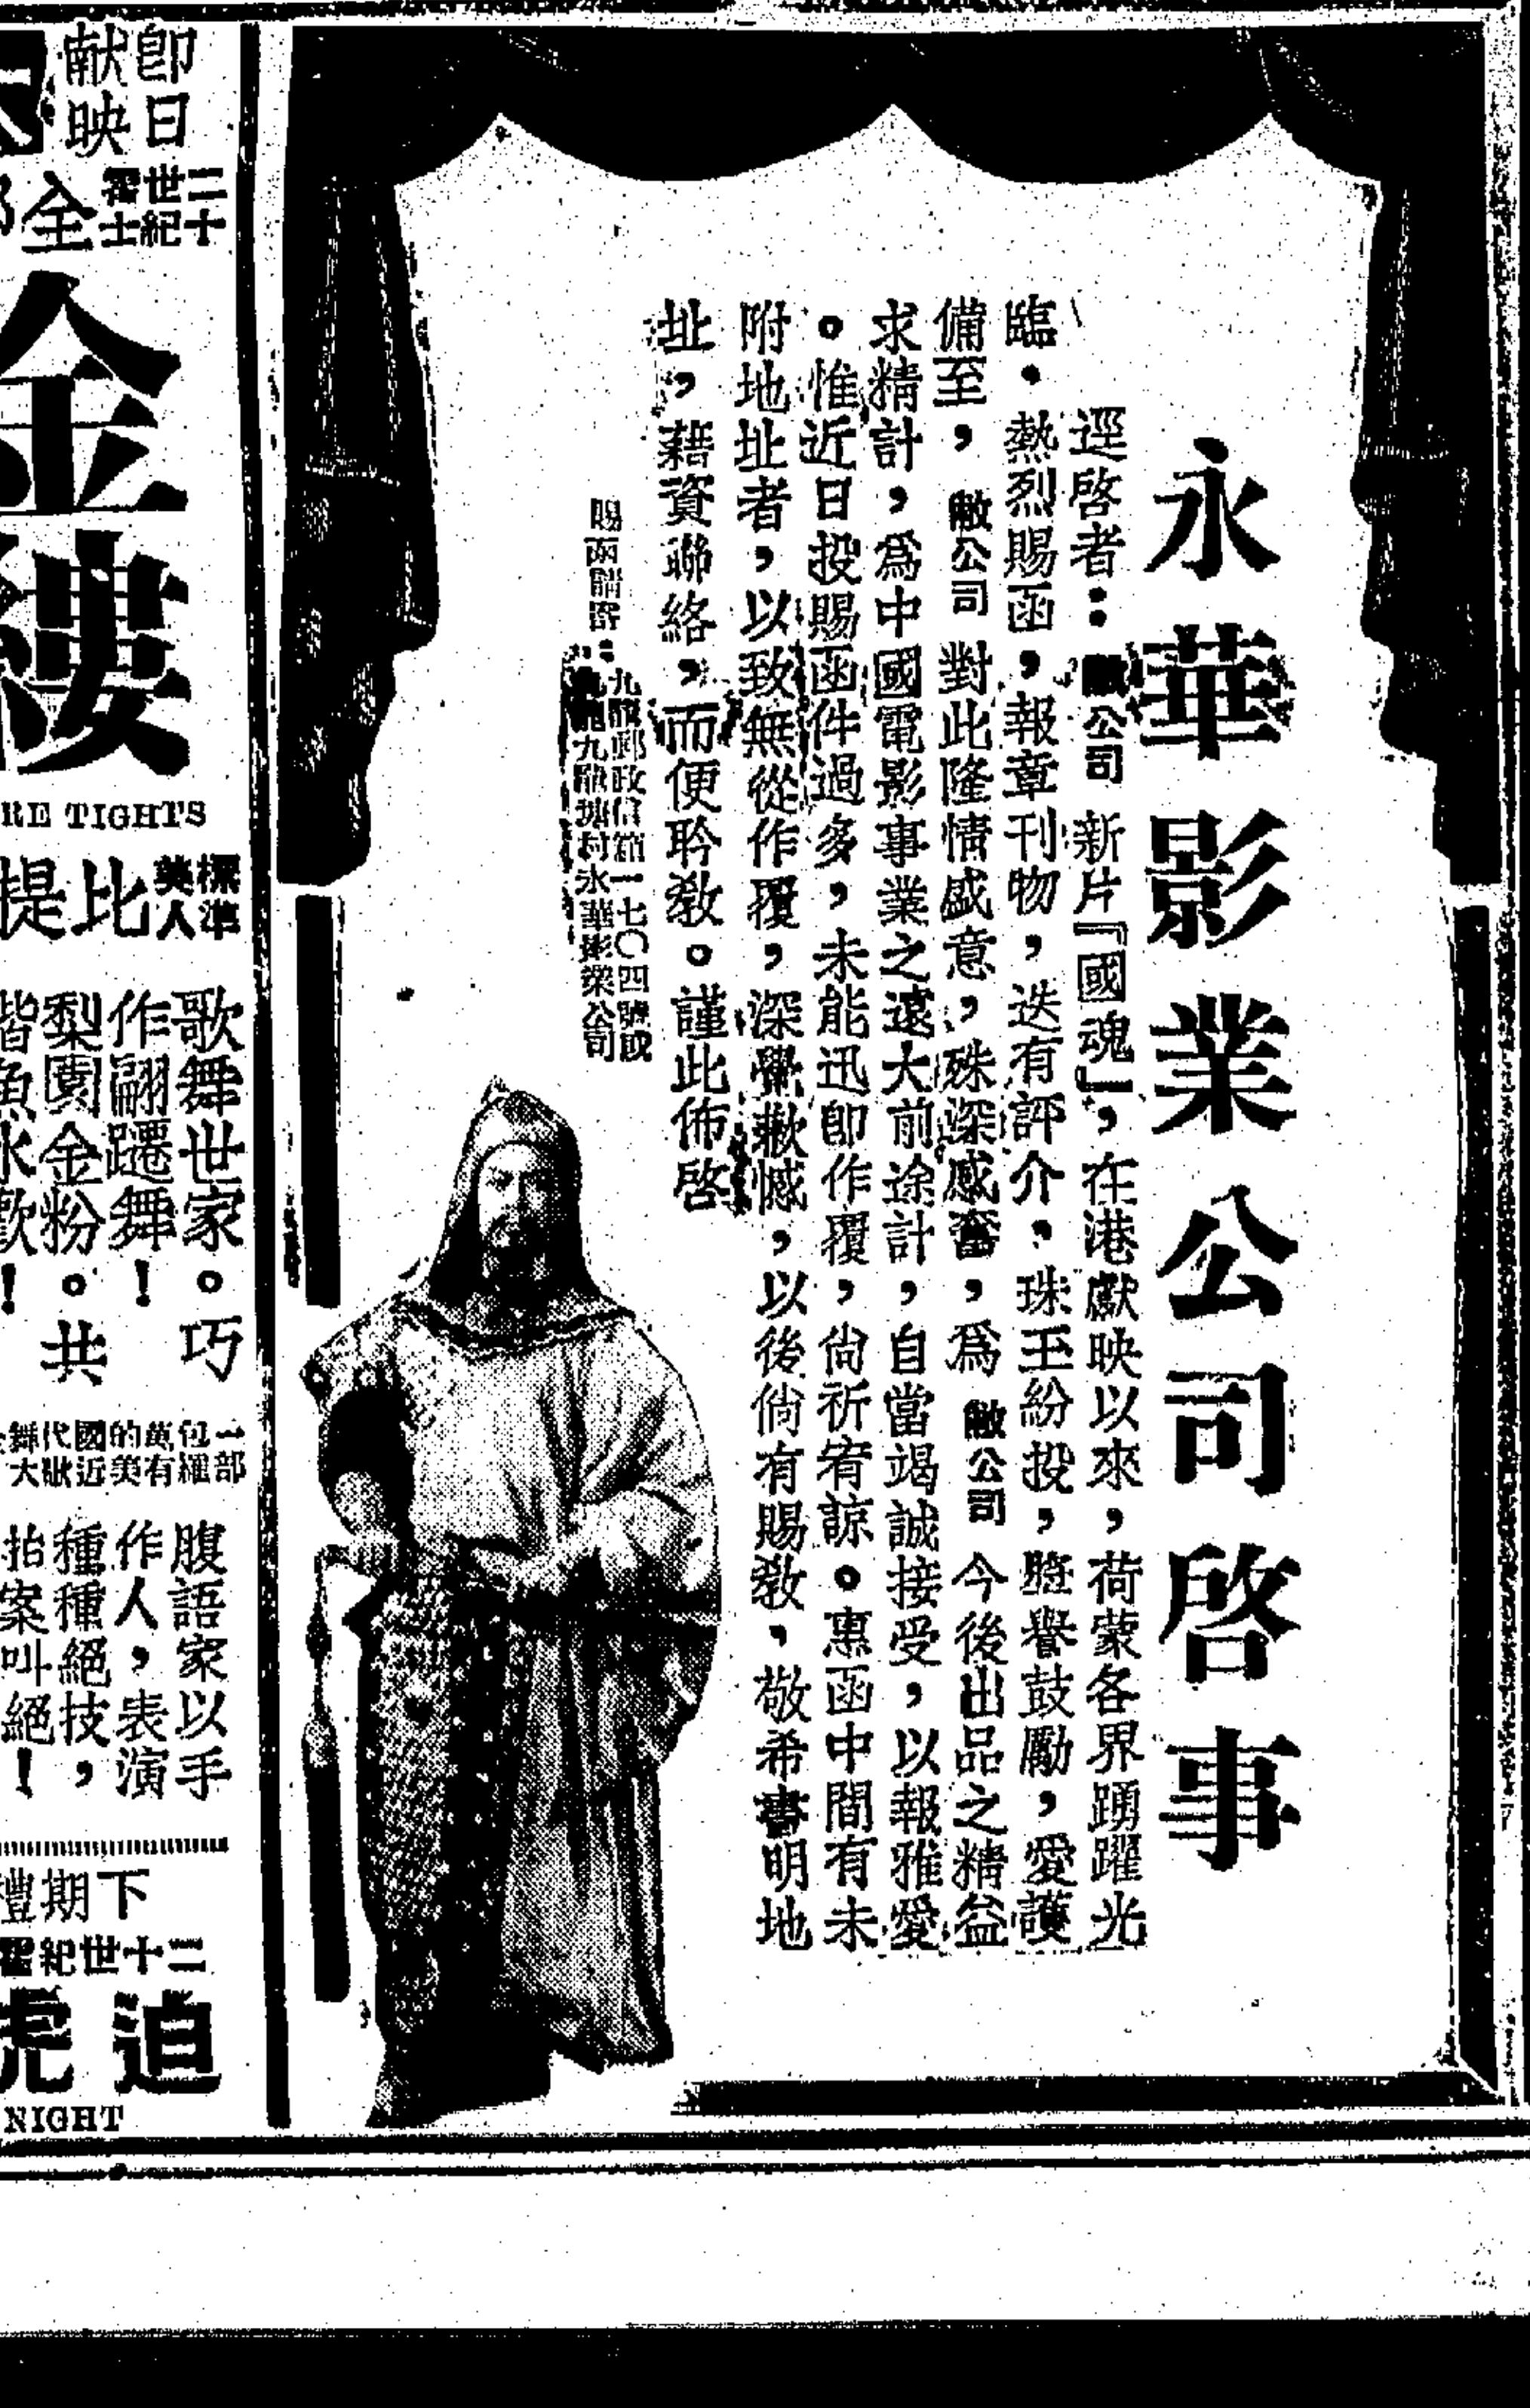 永華影業公司啓事
逕啓者：敝公司新片『國魂』，在港獻映以來，荷蒙各界踴躍光
臨，熱烈賜函，報章刊物，迭有評介，珠玉紛投，獎譽鼓勵，愛護
備至，敝公司對此隆情盛意，殊深感奮，爲敝公司今後出品之精益
求精計，爲中國電影事業之遠大前途計，自當竭誠接受，以報雅愛
。惟近日投賜函件過多，未能迅卽作覆，尙祈宥諒。惠函中間有未
附地址者，以致無從作覆，深覺歉憾，以後倘有賜敎，敬希書明地
址，藉資聯絡，而便聆敎。謹此佈啓
賜函請寄：
九龍郵政信箱一七〇四號或
九龍九龍塘村永華影業公司
卽日
獻映
二十
世紀
霍士
全
金縷
RE TIGHTS
標準
美人
比提
歌舞世家。巧
作翩躚舞！
梨園金粉。共
諧魚水歡！
一部
包羅
萬有
的美
國近
代歌
舞大
腹語家以手
作人，表演
種種絕技，
拍案叫絕！
下期
二十世紀霍
迫虎
NIGHT